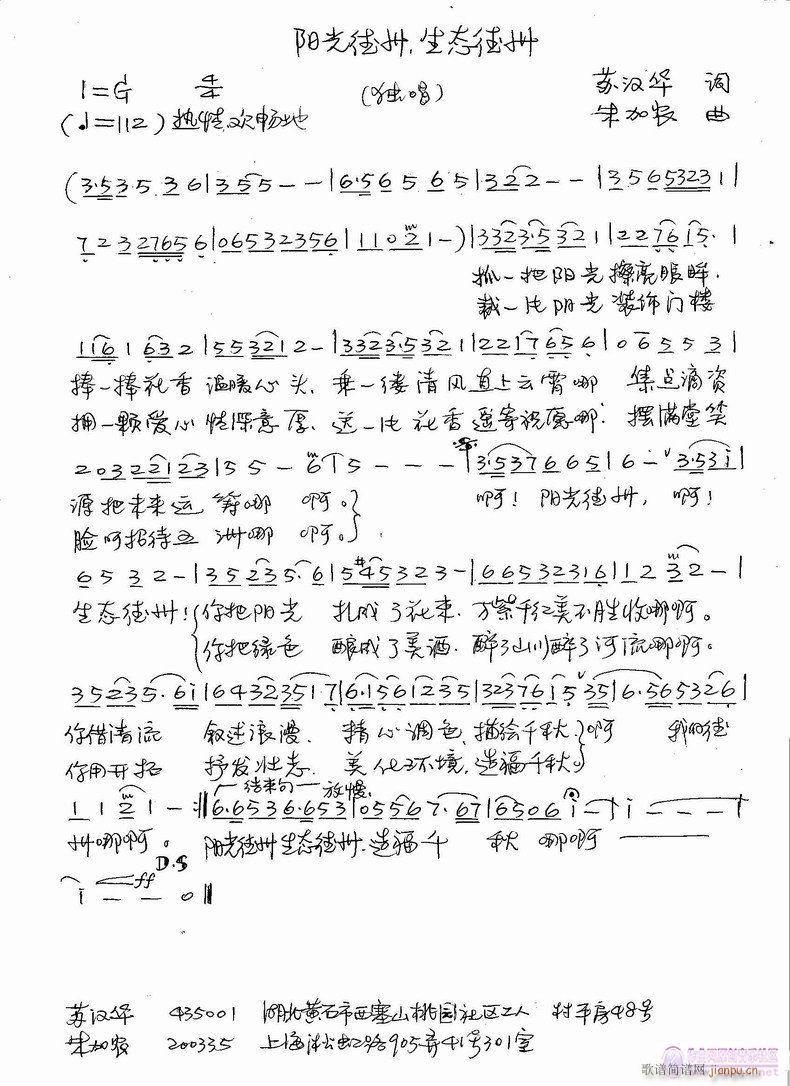 阳光徒州,生态徒州
1=G 4/4 (独唱) 苏汉华 词
(♩=112) 热情欢畅地 朱加农 曲
(3·535 36|355--|6·56565|322--|35653231|
7232765 6|06532356|1102 1-)|3323·5321|22761 5·|
抓一把阳光擦亮眼眸,
裁一片阳光装饰门楼
1161 632|553212-|3323·5321|2217656|06553|
捧一捧花香温暖心头,乘一缕清风直上云霄哪 集点滴资
拥一颗爱心情深意厚,送一片花香遥寄祝愿哪.摆满堂笑
203221 23|55-6|5---|3·537665|6-3·53i|
源把未来运筹哪 啊。 啊!阳光徒州,啊!
脸呵招待五洲哪 啊。
6532-|35235·6|5#45323-|665323 16|1232-|
生态徒州!你把阳光 扎成了花束.万紫千红美不胜收哪啊。
你把绿色 酿成了美酒.醉了山川醉了河流哪啊。
35235·6i|64323517|6·156 1235|3237615 35|6·565326|
你借清流 叙述浪漫.精心调色,描绘千秋。啊 我的徒
你用开拓 抒发壮志.美化环境,造福千秋。
结束句 放慢
1121-:‖6·6536·653|05567·67|6506i-|i---|
州哪啊。阳光徒州生态徒州.造福千 秋 哪啊
D.S ff
i--0‖
苏汉华 435001 湖北黄石市西塞山桃园社区工人村平房48号
朱加农 200335 上海淞虹路905弄41号301室
歌谱简谱网 jianpu.cn